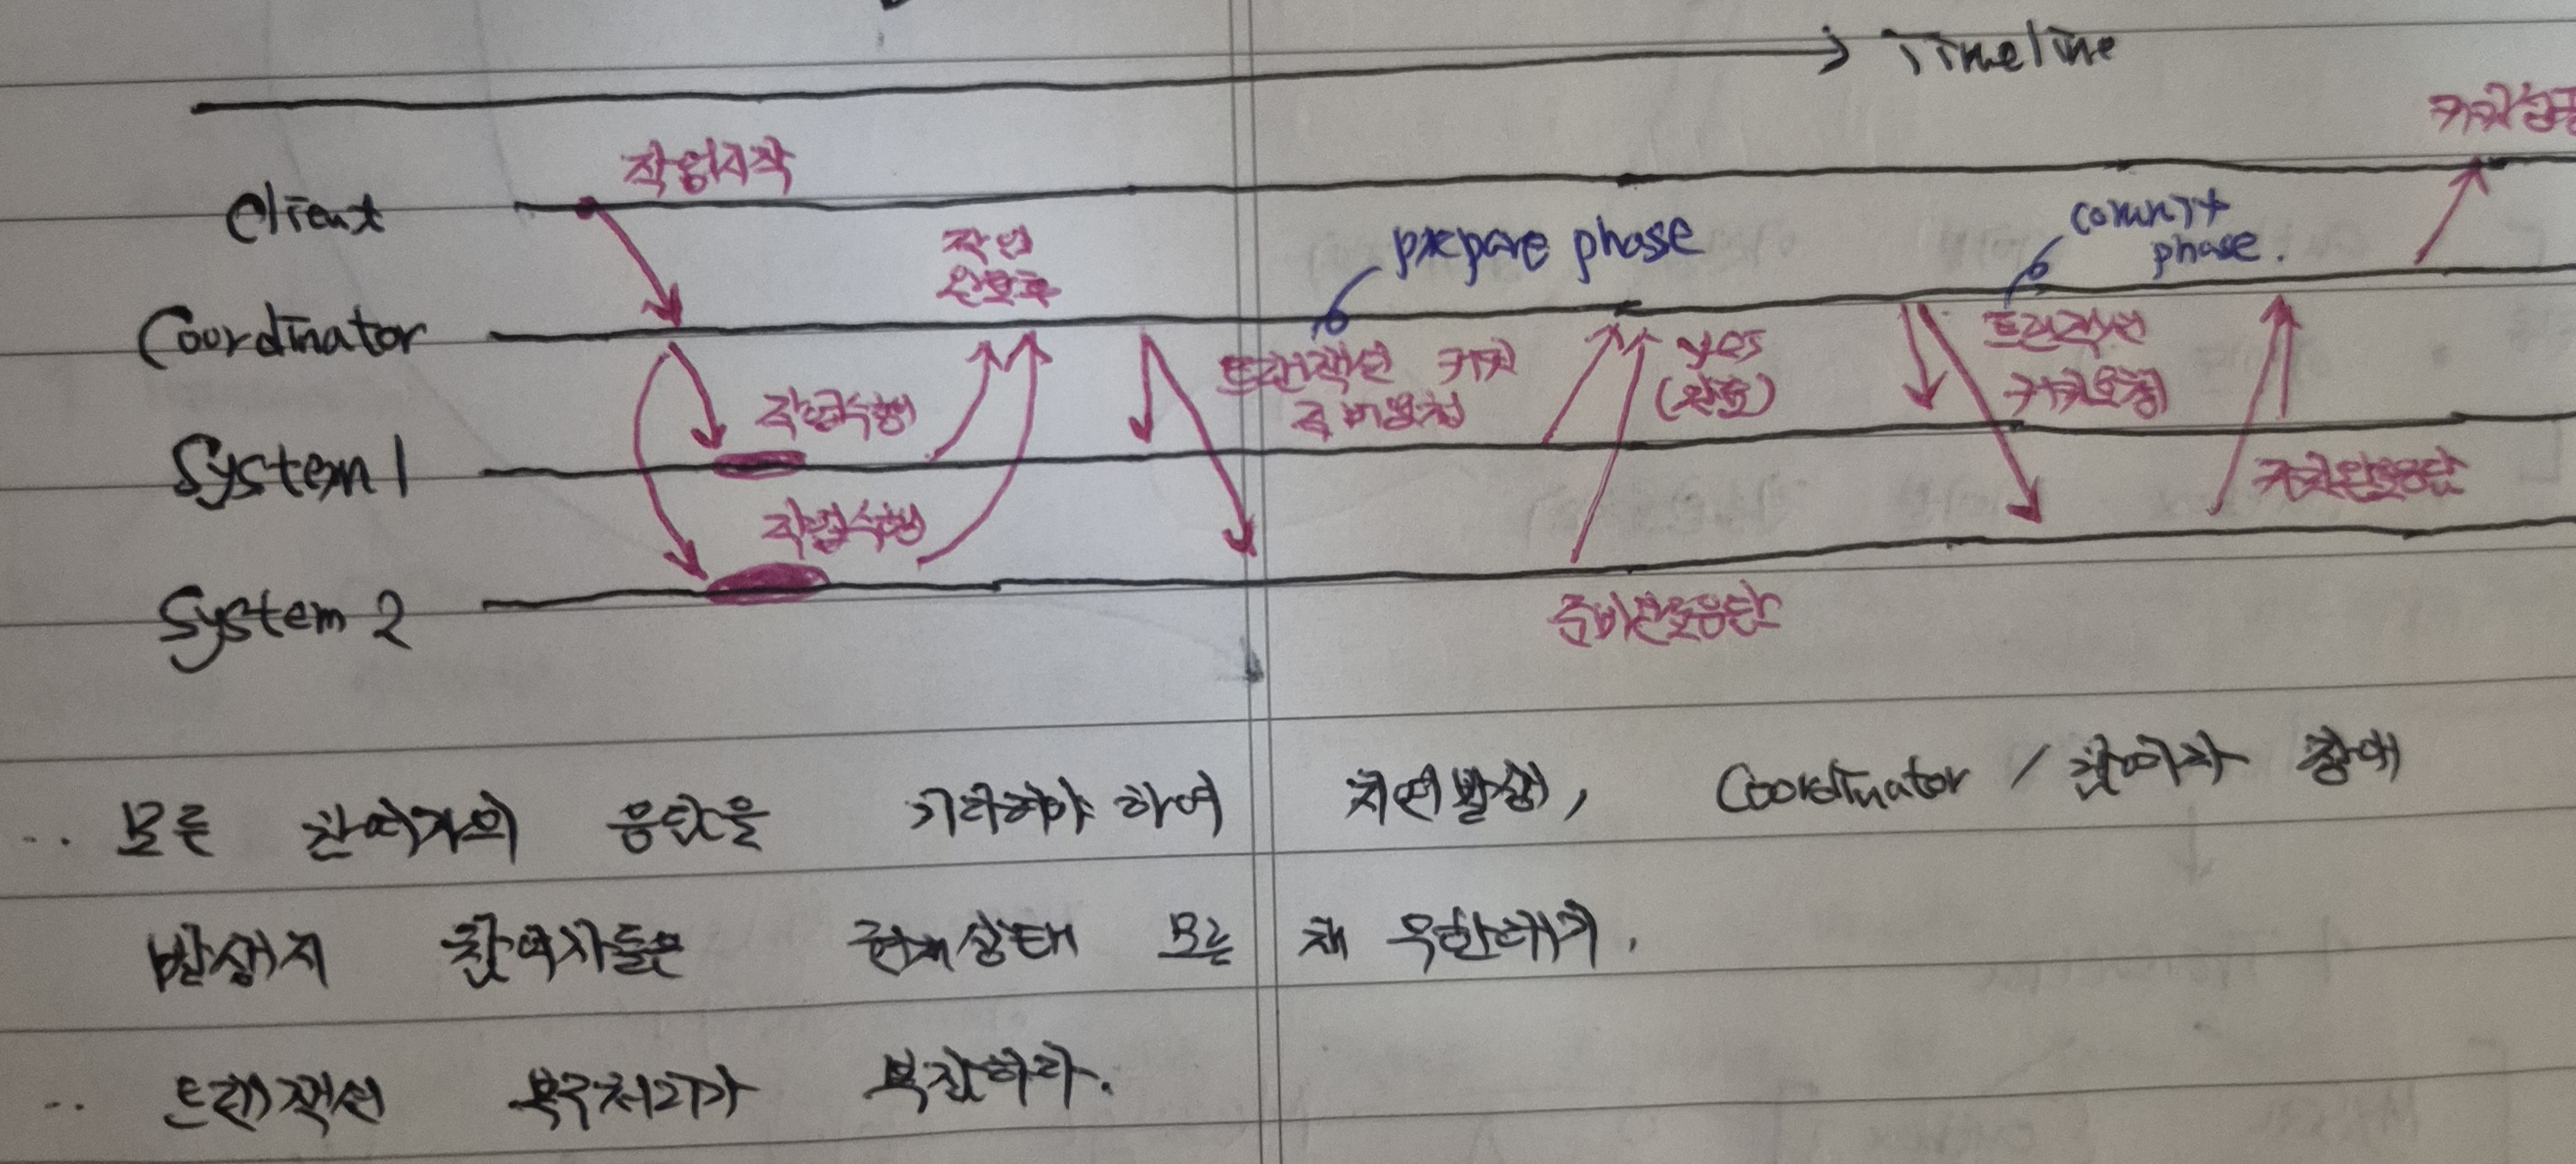 Timeline
커밋
작업시작
Client
commit
phase.
작업
완료후
prepare phase
Coordinator
트랜잭션 커밋
준비요청
yes
(완료)
트랜잭션
커밋요청
작업수행
System 1
커밋완료응답
작업수행
System 2
준비완료응답
.. 모든 참여자의 응답을 기다려야 하여 지연발생, Coordinator / 참여자 장애
발생시 참여자들은 현재상태 모른 채 무한대기.
.. 트랜잭션 복구처리가 복잡하다.